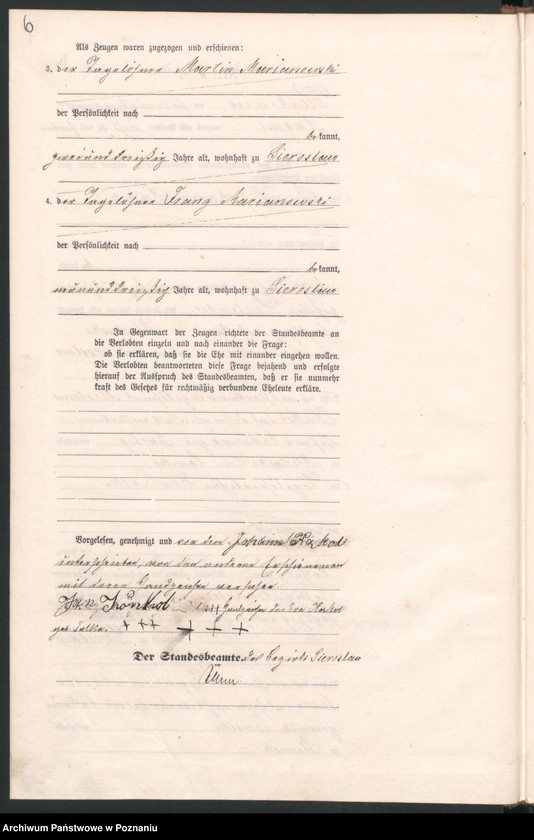 6
Als Zeugen waren zugezogen und erschienen:
3. der Tagelöhner Martin Marianowski
der Persönlichkeit nach
bekannt,
zweiunddreißig Jahre alt, wohnhaft zu Sieroslaw
4. der Tagelöhner Franz Marianowski
der Persönlichkeit nach
bekannt,
neununddreißig Jahre alt, wohnhaft zu Sieroslaw
In Gegenwart der Zeugen richtete der Standesbeamte an
die Verlobten einzeln und nach einander die Frage:
ob sie erklären, daß sie die Ehe mit einander eingehen wollen.
Die Verlobten beantworteten diese Frage bejahend und erfolgte
hierauf der Ausspruch des Standesbeamten, daß er sie nunmehr
kraft des Gesetzes für rechtmäßig verbundene Eheleute erkläre.
Vorgelesen, genehmigt und von dem Johann
unterschrieben, von den anderen Erschienenen
mit deren Handzeichen versehen
Jan +++ Handzeichen der Eva
geb. + +++ + + +
Der Standesbeamte des Bezirks Sieroslaw
Archiwum Państwowe w Poznaniu